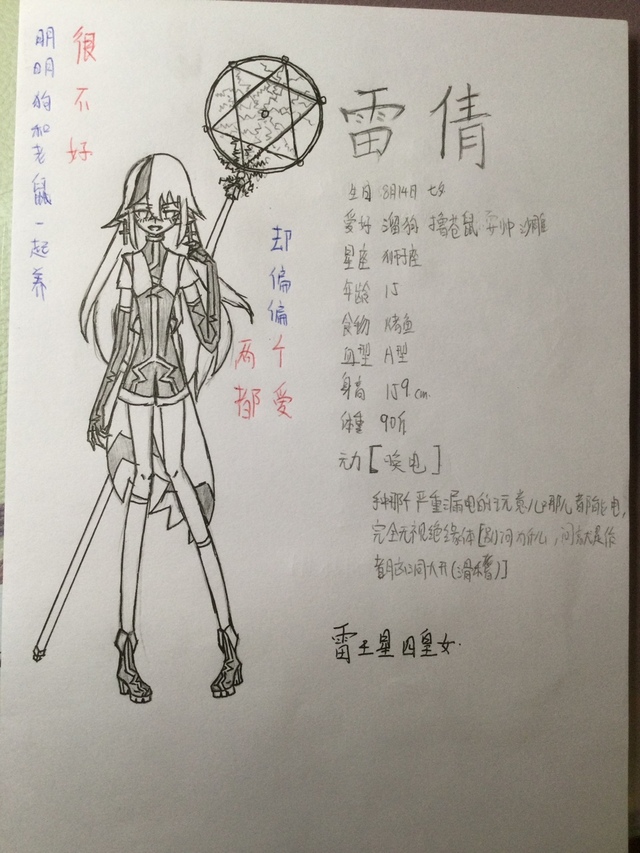 很不好
明明狗和老鼠一起养
却偏偏
两个
都爱
雷倩
生日 8月14日 七夕
爱好 溜狗 撸苍鼠 耍帅 沙雕
星座 狮子座
年龄 15
食物 烤鱼
血型 A型
身高 159.cm.
体重 90斤
元力[唤电]
手中那个严重漏电的玩意儿哪儿都能电,
完全无视绝缘体[别问为啥,问就是作
者脑洞大开(滑稽)]
雷王星四皇女.